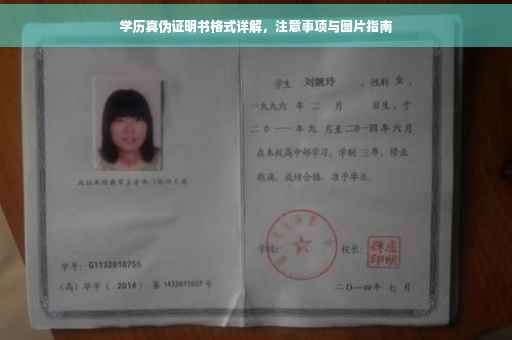 学历真伪证明书格式详解，注意事项与图片指南
学生 刘婉玲 ，性别 女 ，
一九九六 年 二 月 日生，于
二〇一一 年 九 月至 二〇一四 年 六 月
在本校高中部学习，学制 三 年，修业
期满，成绩合格，准予毕业。
学号：G1132010755
（高）毕字（ 2014 ）第 1432011027 号
学校： 校长：
二〇一四年 七 月